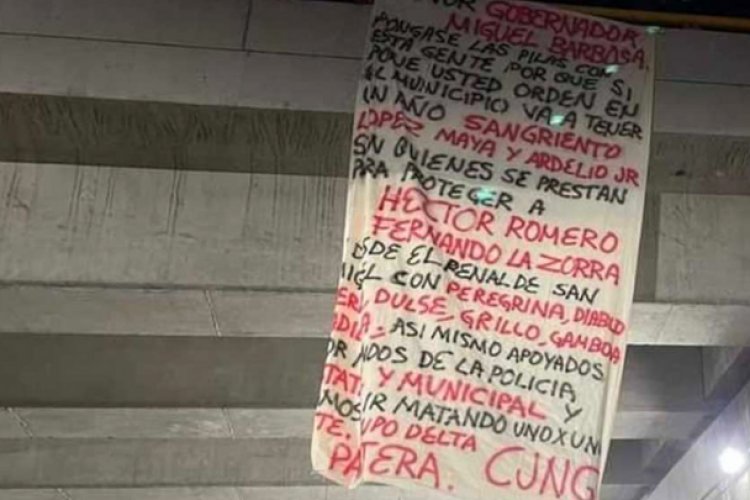 GOBERNADOR
MIGUEL BARBOSA,
PONGASE LAS PILAS CON
ESTA GENTE POR QUE SI
PONE USTED ORDEN EN
MUNICIPIO VA A TENER
UN AÑO SANGRIENTO
LOPEZ MAYA Y ARDELIO JR
SN QUIENES SE PRESTAN
PRA PROTEGER A
HECTOR ROMERO
FERNANDO LA ZORRA
SDE EL PENAL DE SAN
CON PEREGRINA, DIABLO
DULSE, GRILLO, GAMBOA
ASI MISMO APOYADOS
DOS DE LA POLICIA
Y MUNICIPAL Y
IR MATANDO UNO X UN
UPO DELTA
CJNG